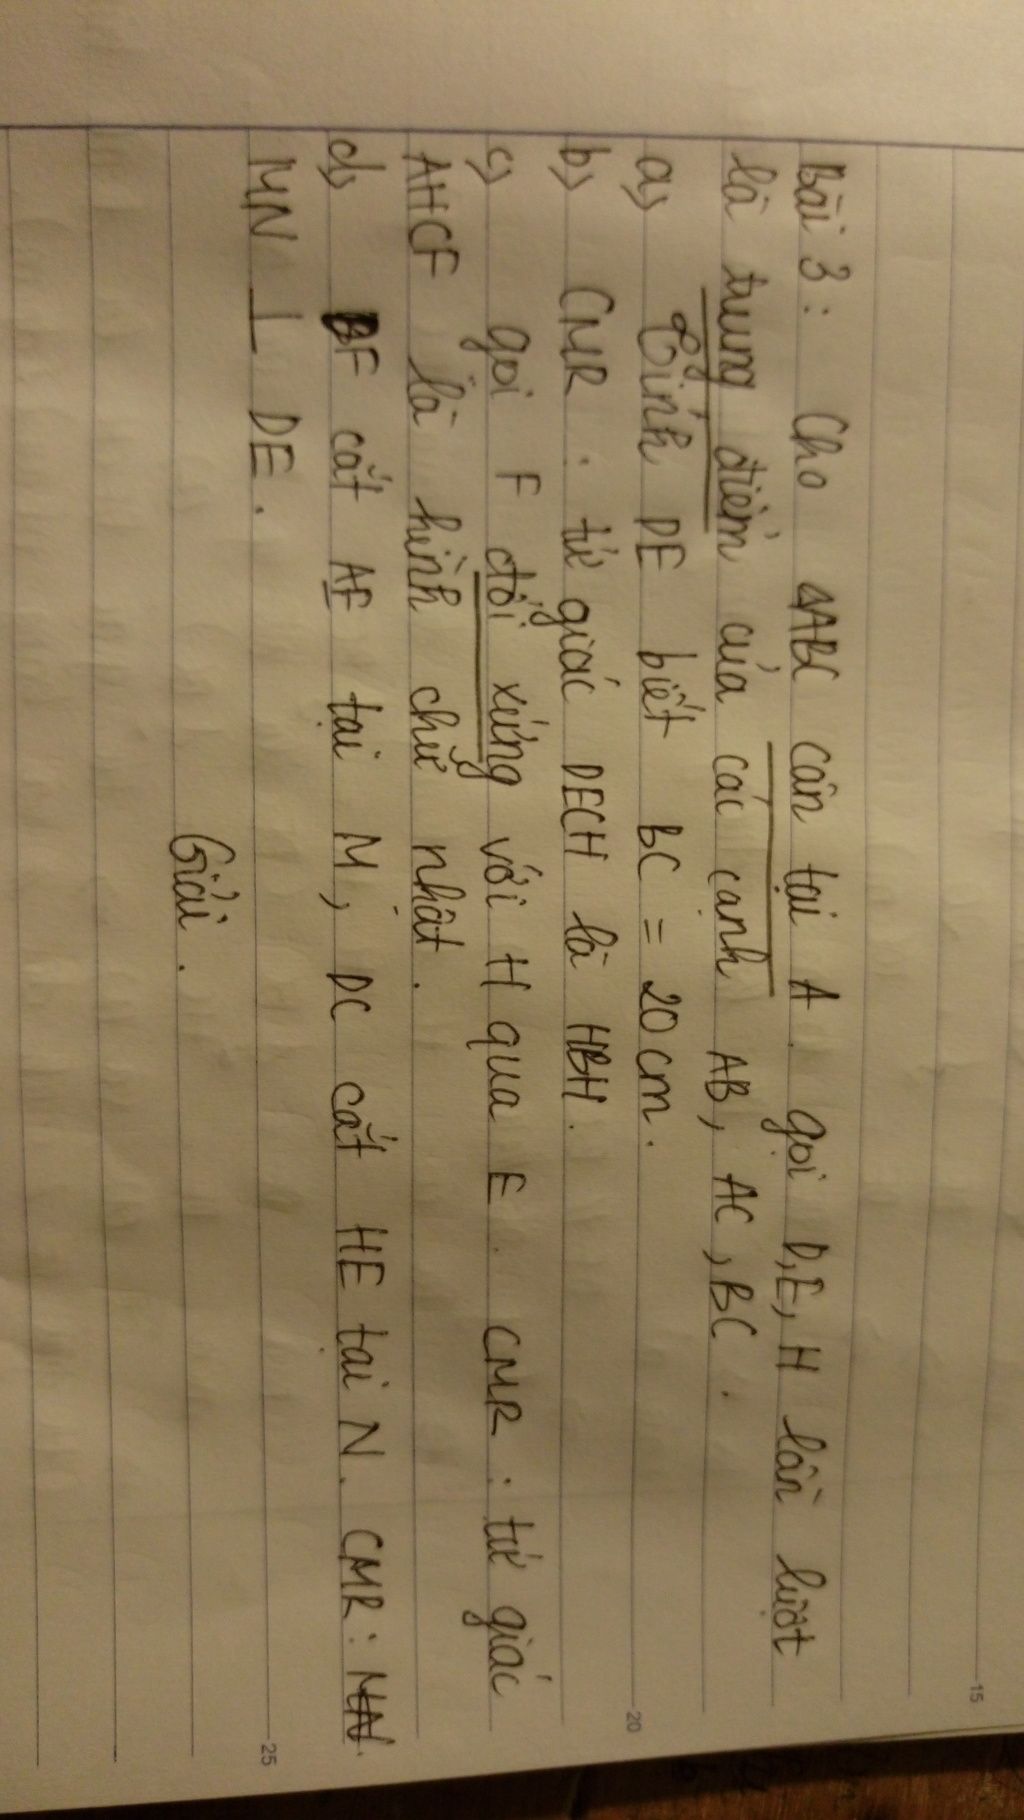 Bài 3: Cho ΔABC cân tại A. gọi D, E, H lần lượt
là trung điểm của các cạnh AB, AC, BC.
a) Tính DE biết BC = 20cm.
b) CMR: tứ giác DECH là HBH.
c) gọi F đối xứng với H qua E. CMR: tứ giác
AHCF là hình chữ nhật.
d) BF cắt AE tại M, DC cắt HE tại N. CMR: MN
MN ⊥ DE.
Giải.
15
20
25